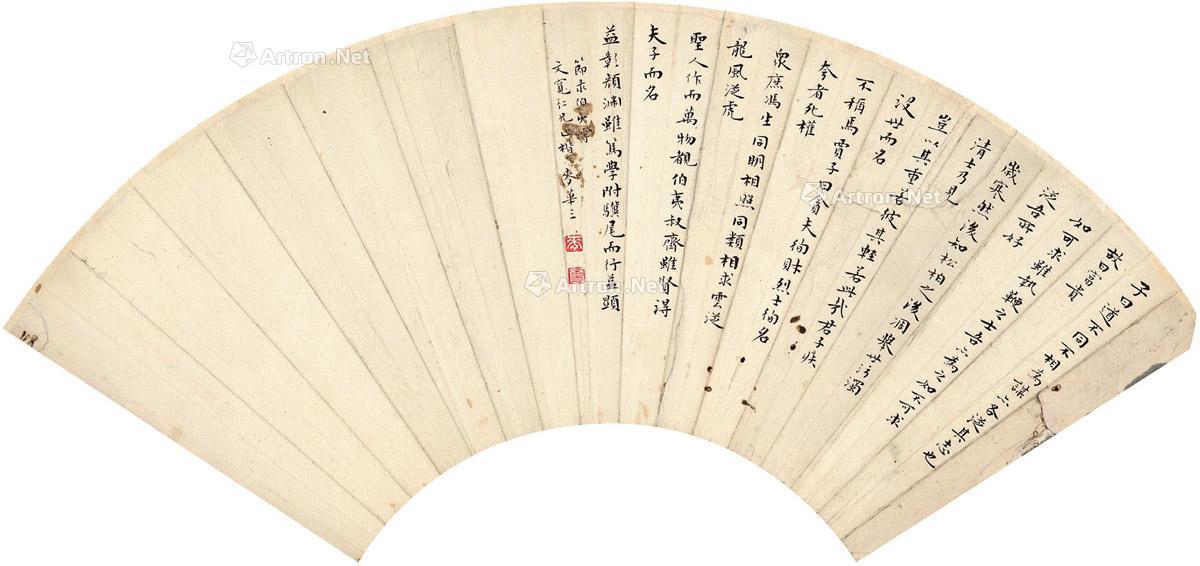 子曰道不同不相為謀亦各從其志也
故曰富貴
如可求雖執鞭之士吾亦為之如不可求
從吾所好
歲寒然後知松柏之後凋舉世污濁
清士乃見
豈以其重若彼其輕若此哉君子疾
沒世而名
不稱焉賈子曰貪夫徇財烈士徇名
夸者死權
眾庶馮生同明相照同類相求雲從
龍風從虎
聖人作而萬物覩伯夷叔齊雖賢得
夫子而名
益彰顏淵雖篤學附驥尾而行益顯
節錄伯夷傳
文寬仁兄正楷 麥華三
Artron.Net
Artron.Net
Artron.Net